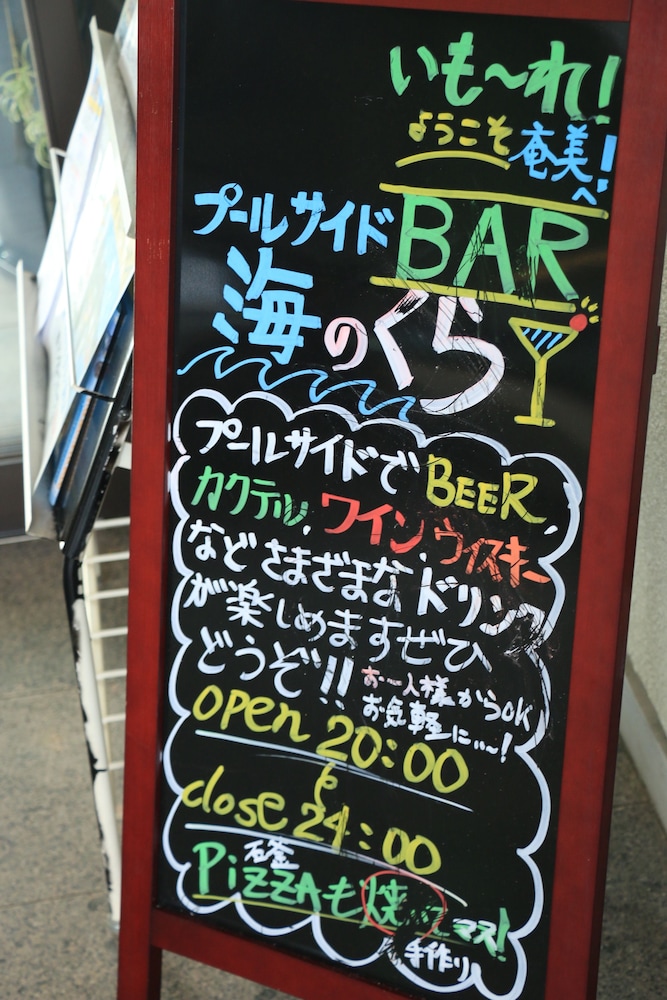 いも～れ!
ようこそ奄美へ!
プールサイドBAR
海のくら
プールサイドでBEER,
カクテル,ワイン,ウイスキー
などさまざまなドリンク
が楽しめますぜひ
どうぞ!!
お一人様からOK
お気軽に〜!
open 20:00
~
close 24:00
石釜
PizzAも焼けてマス!
手作り